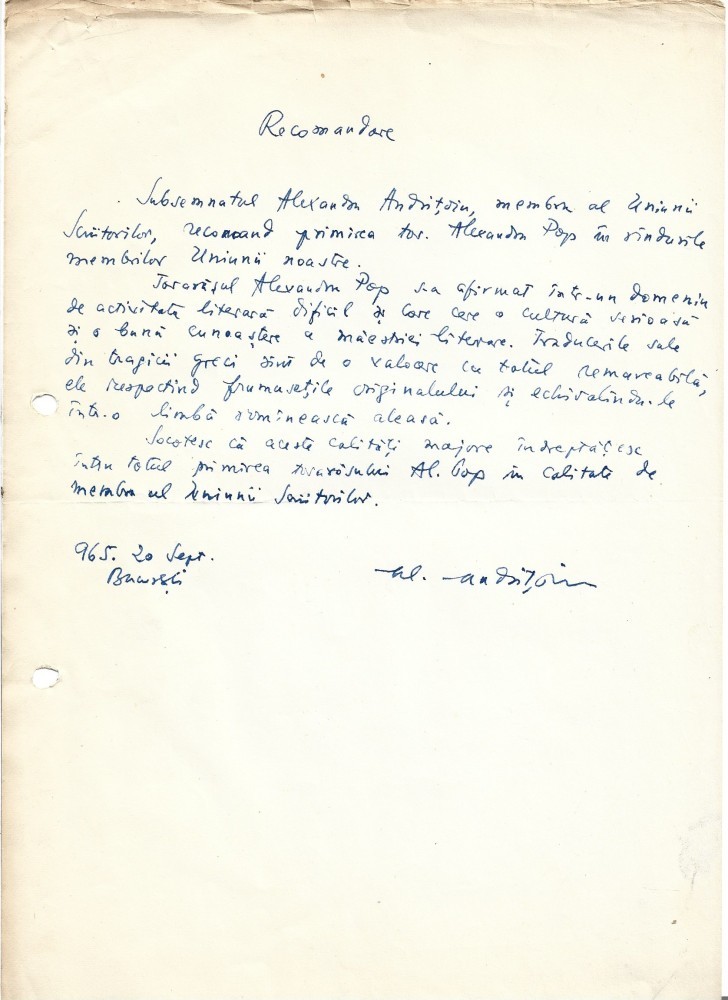 Recomandare
Subsemnatul Alexandru Andrițoiu, membru al Uniunii
Scriitorilor, recomand primirea tov. Alexandru Pop în rîndurile
membrilor Uniunii noastre.
Tovarășul Alexandru Pop s-a afirmat într-un domeniu
de activitate literară dificil și care cere o cultură serioasă
și o bună cunoaștere a măestriei literare. Traducerile sale
din tragicii greci sînt de o valoare cu totul remarcabilă,
ele respectînd frumusețile originalului și echivalîndu-le
într-o limbă romînească aleasă.
Socotesc că aceste calități majore îndreptățesc
întru totul primirea tovarășului Al. Pop în calitate de
membru al Uniunii Scriitorilor.
965. 20 Sept.
București
Al. Andrițoiu